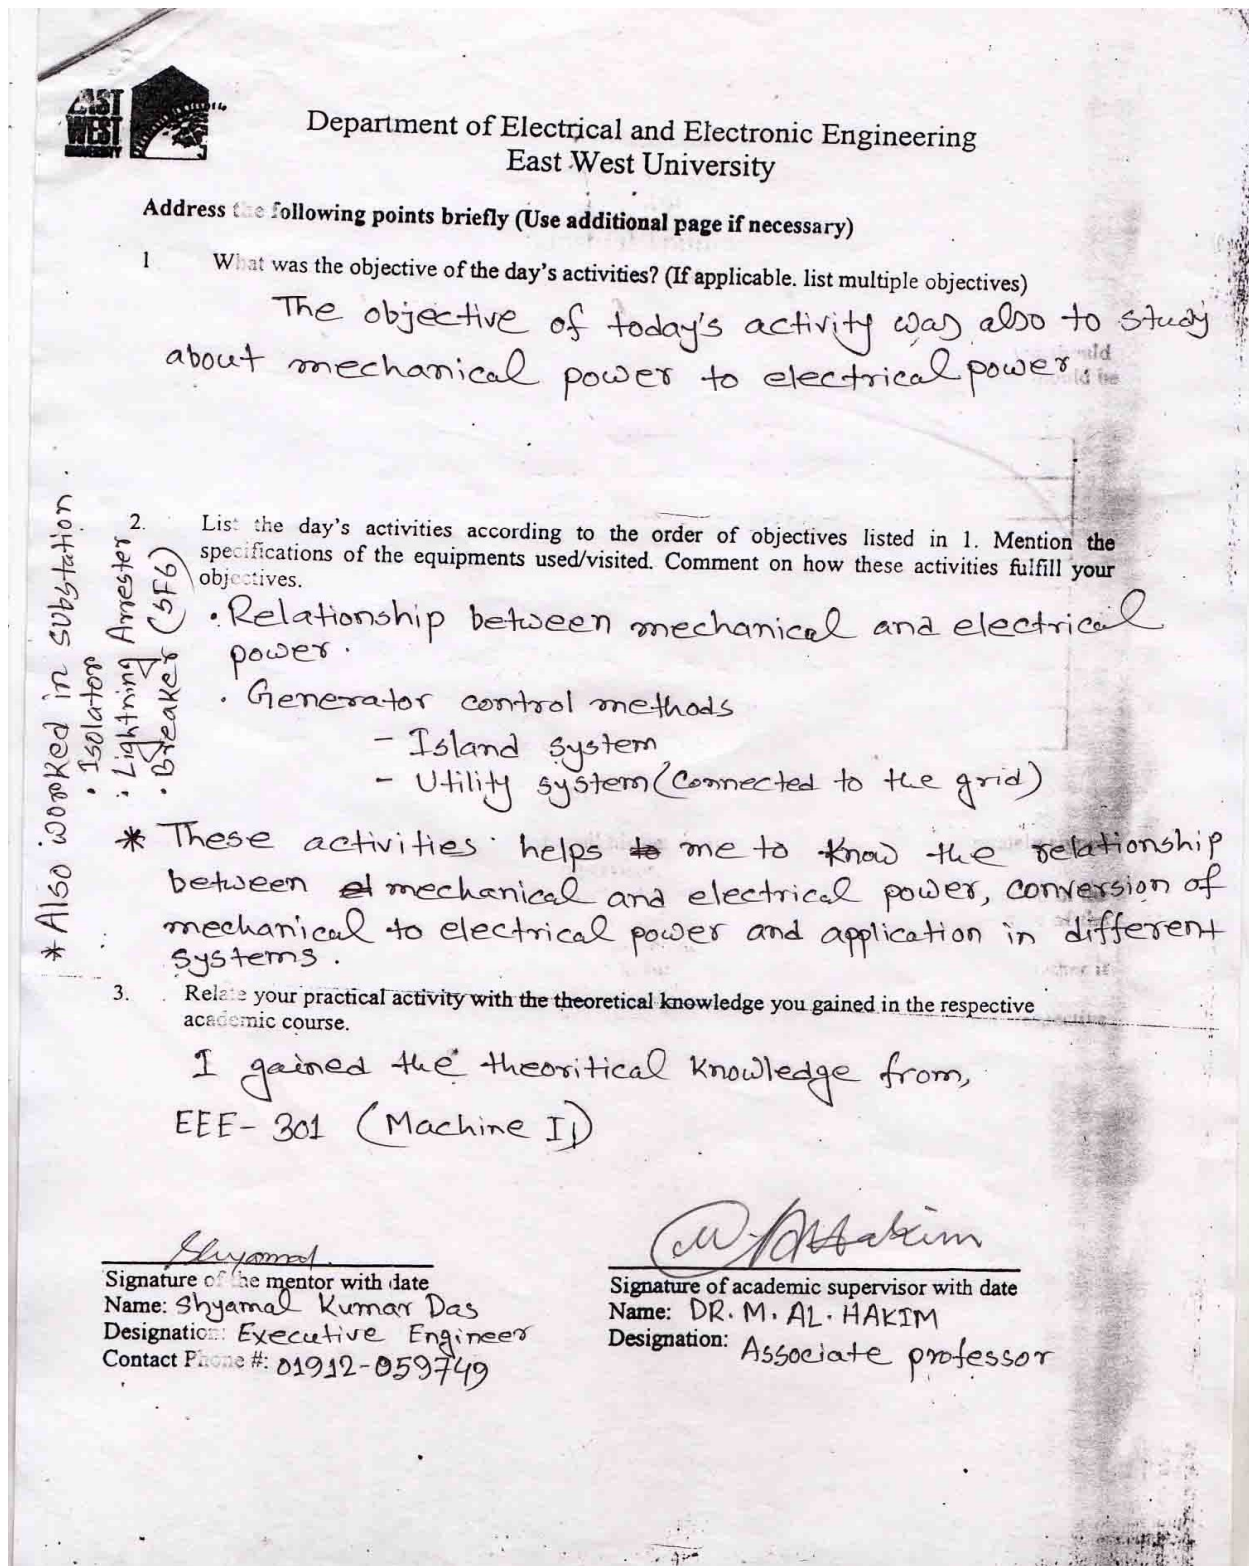 EAST
WEST
UNIVERSITY
Department of Electrical and Electronic Engineering
East West University
Address the following points briefly (Use additional page if necessary)
1 What was the objective of the day's activities? (If applicable. list multiple objectives)
The objective of today's activity was also to study
about mechanical power to electrical power.
2. List the day's activities according to the order of objectives listed in 1. Mention the
specifications of the equipments used/visited. Comment on how these activities fulfill your
objectives.
• Relationship between mechanical and electrical
power.
• Generator control methods
- Island system
- Utility system (Connected to the grid)
* These activities helps me to know the relationship
between mechanical and electrical power, conversion of
mechanical to electrical power and application in different
systems.
* Also worked in substation.
• Isolator
• Lightning Arrester
• Breaker (SF6)
3. Relate your practical activity with the theoretical knowledge you gained in the respective
academic course.
I gained the theoritical knowledge from,
EEE-301 (Machine I)
Shyamal
Signature of the mentor with date
Name: Shyamal Kumar Das
Designation: Executive Engineer
Contact Phone #: 01912-059749
Signature of academic supervisor with date
Name: DR. M. AL. HAKIM
Designation: Associate professor